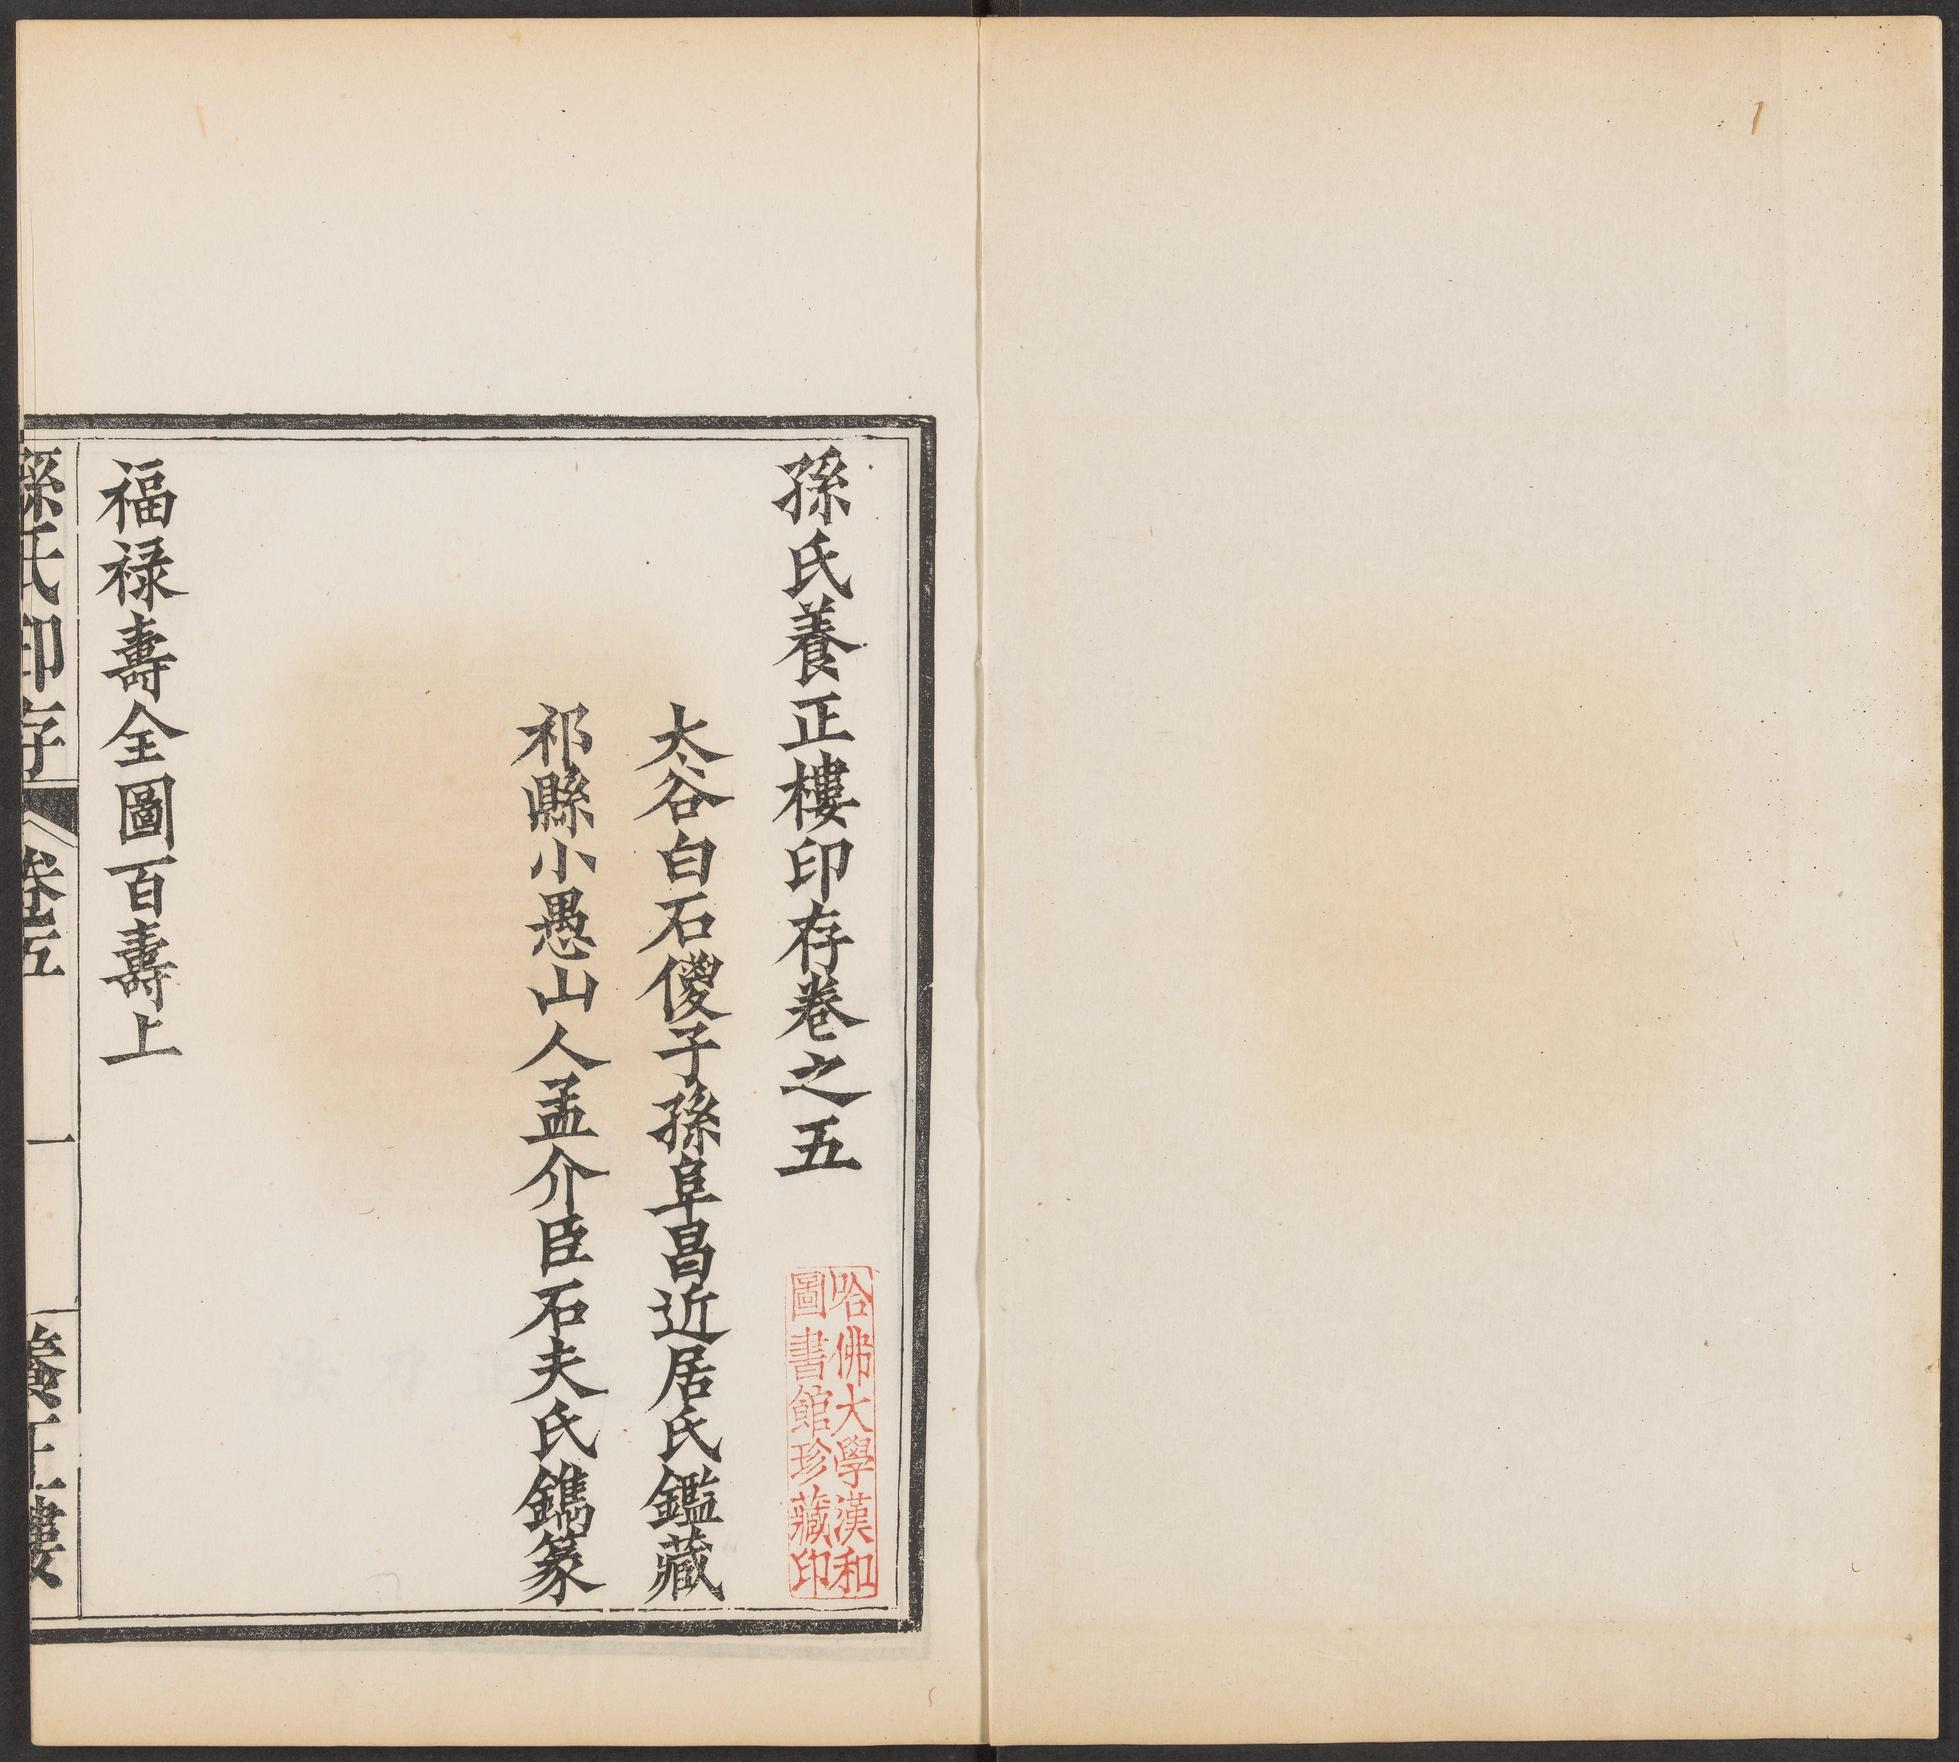 孫氏養正樓印存卷之五
哈佛大學漢和
圖書館珍藏印
太谷白石儍子孫阜昌近居氏鑑藏
祁縣小愚山人孟介臣石夫氏鐫篆
福祿壽全圖百壽上
孫氏印存
卷五
一
養正樓